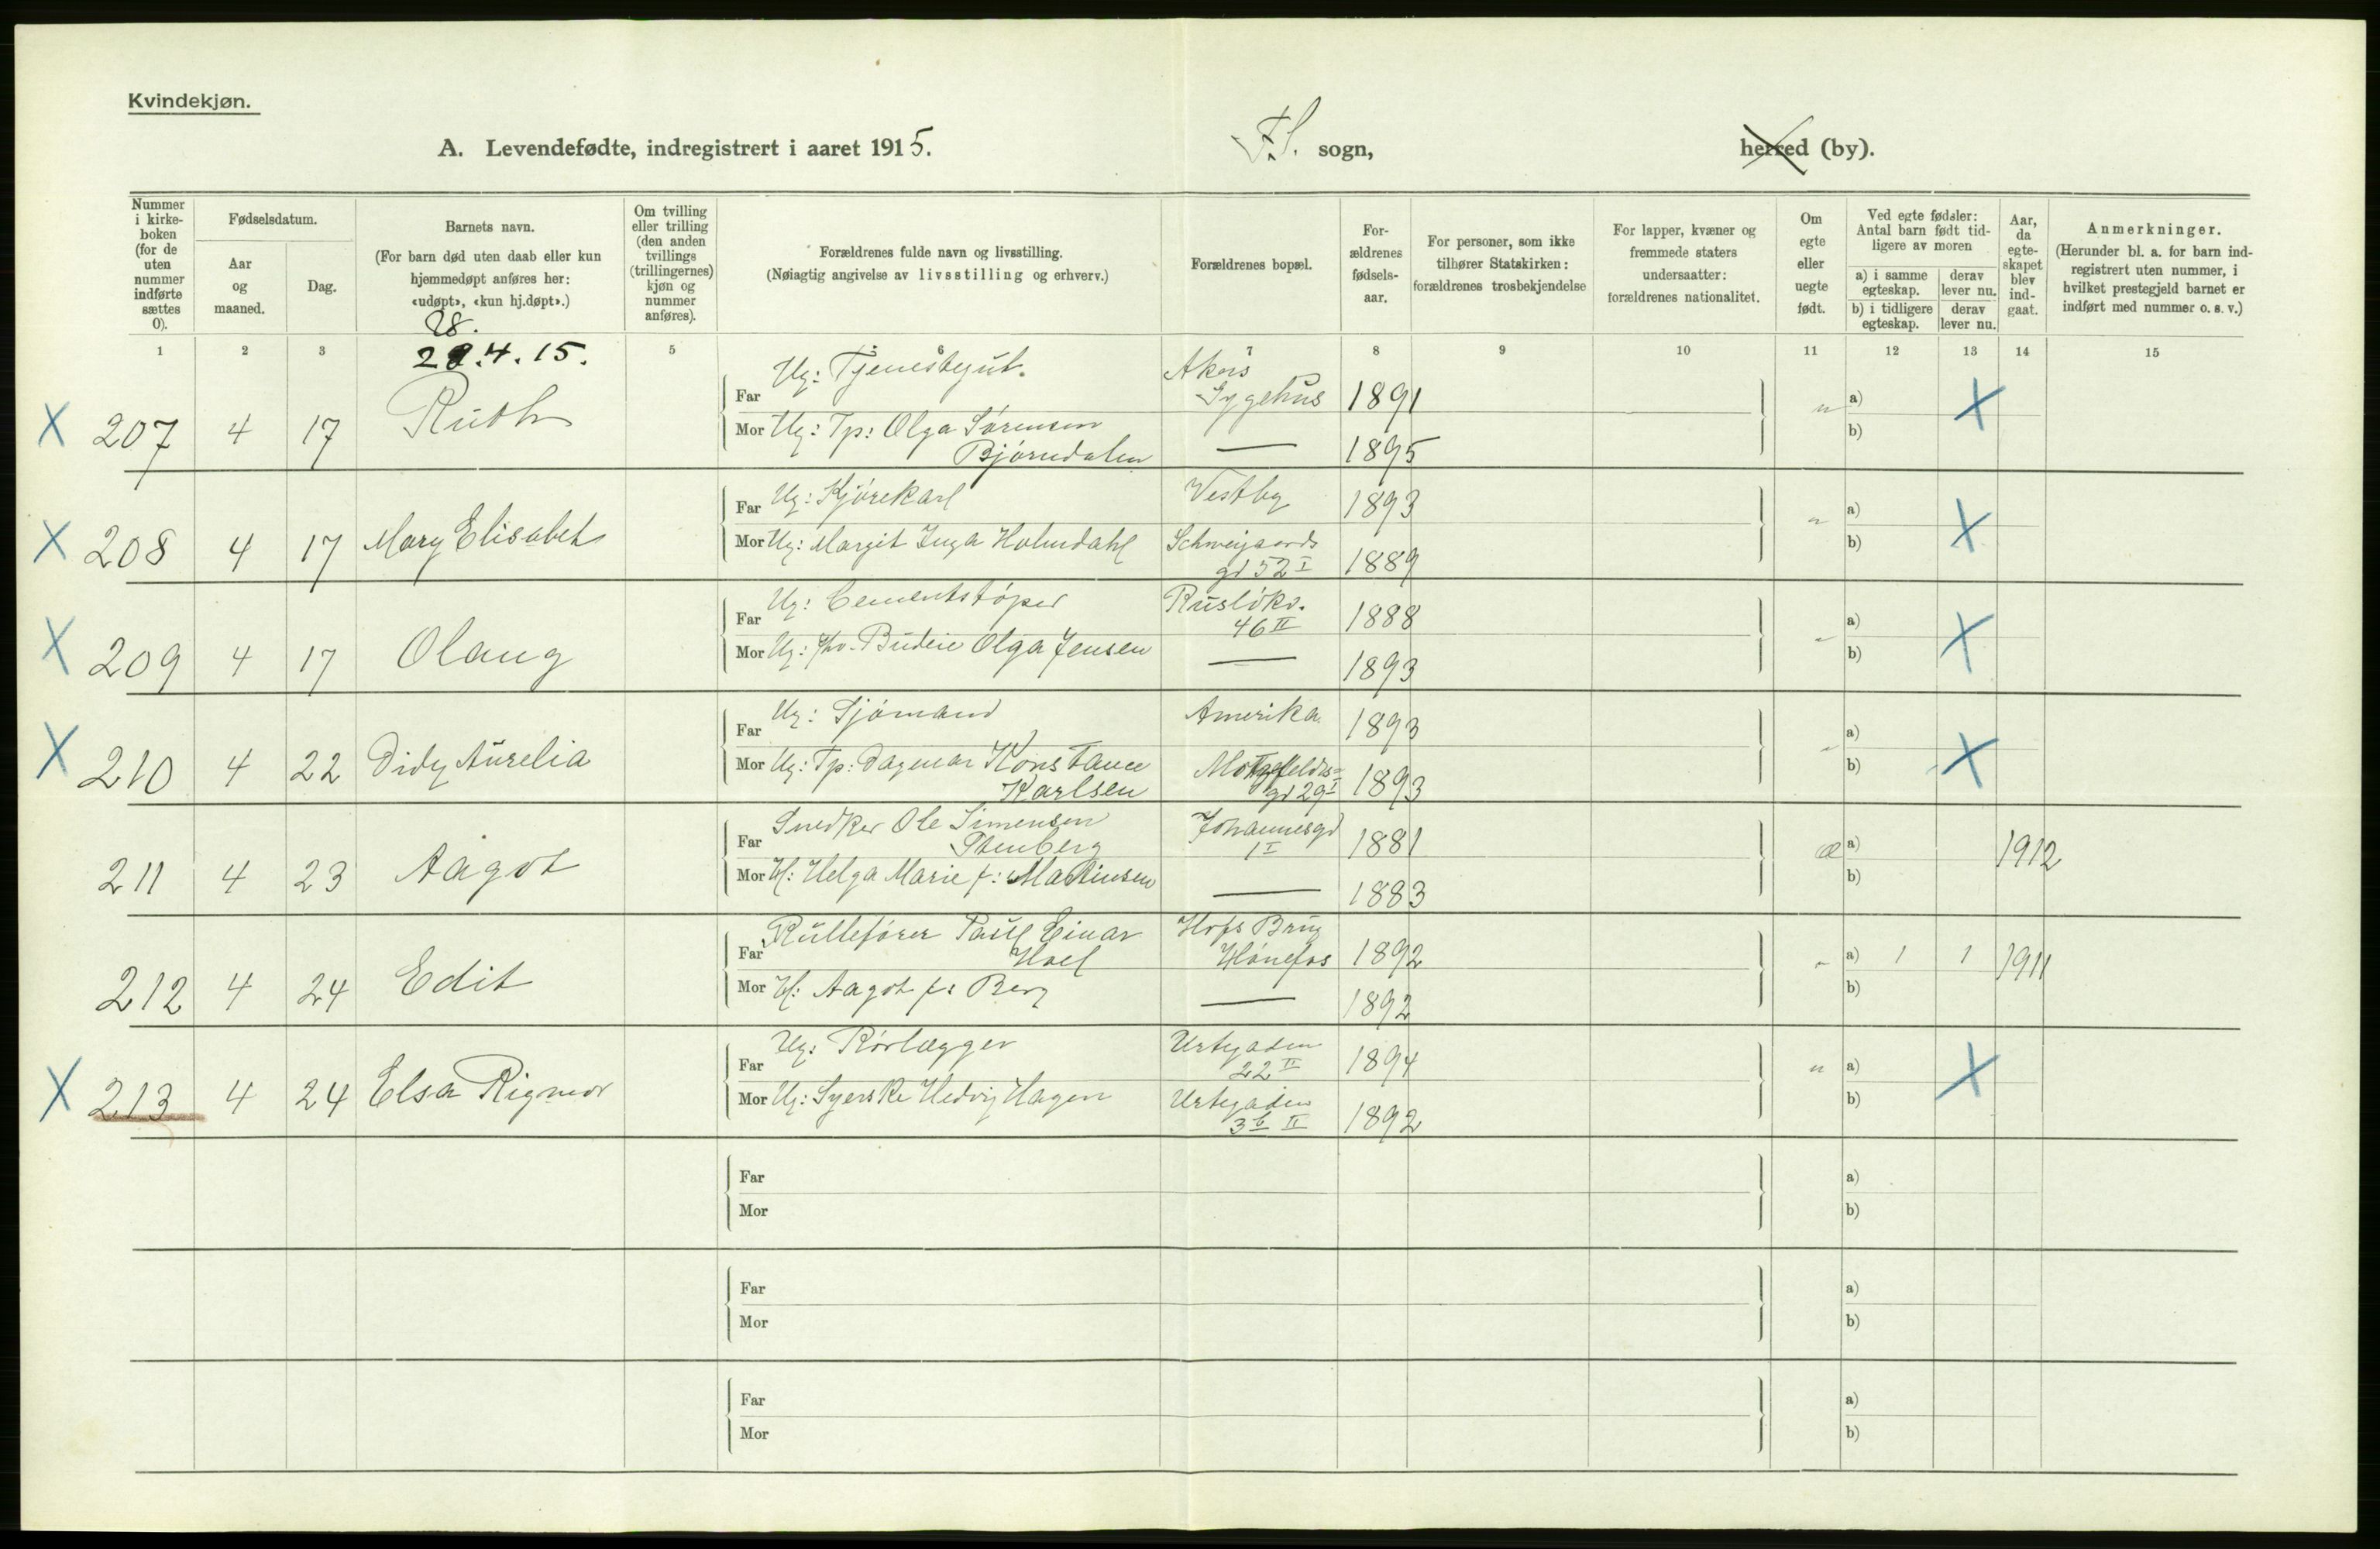 Kvindekjøn.
A. Levendefødte, indregistrert i aaret 1915.
F.S. sogn,
herred (by).
Nummer i kirke- boken (for de uten nummer indførte sættes 0).
Fødselsdatum.
Aar og maaned.
Dag.
Barnets navn.
(For barn død uten daab eller kun hjemmedøpt anføres her: «udøpt», «kun hj.døpt».)
Om tvilling eller trilling (den anden tvillings (trillingernes) kjøn og nummer anføres).
Forældrenes fulde navn og livsstilling.
(Nøiagtig angivelse av livsstilling og erhverv.)
Forældrenes bopæl.
For- ældrenes fødsels- aar.
For personer, som ikke tilhører Statskirken: forældrenes trosbekjendelse
For lapper, kvæner og fremmede staters undersaatter: forældrenes nationalitet.
Om egte eller uegte født.
Ved egte fødsler: Antal barn født tid- ligere av moren
a) i samme egteskap.
derav lever nu.
b) i tidligere egteskap.
derav lever nu.
Aar, da egte- skapet blev ind- gaat.
Anmerkninger.
(Herunder bl. a. for barn ind- registrert uten nummer, i hvilket prestegjeld barnet er indført med nummer o. s. v.)
1 2 3 5 6 7 8 9 10 11 12 13 14 15
28.
28.4.15.
X 207 4 17 Ruth
Far Ug: Tjenestegut. Akers Sygehus 1891 " a) X
Mor Ug: Tp: Olga Sørensen Bjørndalen — 1895 b)
X 208 4 17 Mary Elisabeth
Far Ug: Kjørekarl Vestby 1893 " a) X
Mor Ug: Margit Inga Holmdahl Schweigaards gd 52 I 1889 b)
X 209 4 17 Olaug
Far Ug: Cementstøper Rusløkv. 46 II 1888 " a) X
Mor Ug: fhv. Budeie Olga Jensen — 1893 b)
X 210 4 22 Didy Aurelia
Far Ug: Sjømand Amerika 1893 " a) X
Mor Ug: Tp: Dagmar Konstance Karlsen Motzfeldts= gd 29 I 1893 b)
211 4 23 Aagot
Far Snedker Ole Simensen Stenberg Johannesgd 1 I 1881 Æ a) 1912
Mor H: Helga Marie f: Martinsen — 1883 b)
212 4 24 Edit
Far Rullefører Paul Einar Hoel Hofs Brug Hønefos 1892 " a) 1 1 1911
Mor H: Aagot f: Berg — 1892 b)
X 213 4 24 Elsa Rigmor
Far Ug: Rørlægger Urtegaden 22 II 1894 " a) X
Mor Ug: Syerske Hedvig Hagen Urtegaden 3b II 1892 b)
Far a)
Mor b)
Far a)
Mor b)
Far a)
Mor b)